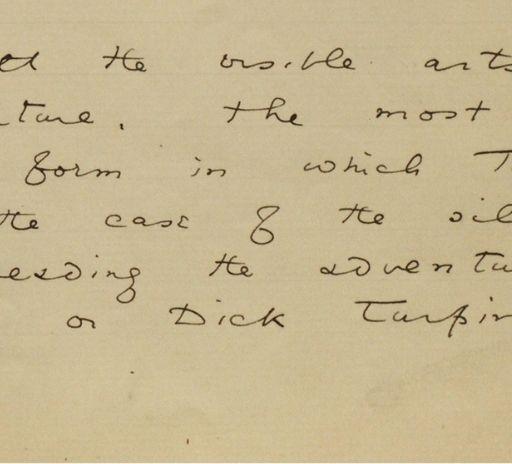 the visible arts
ture. the most
form in which
the case of the
reading the adventu
or Dick Turpin